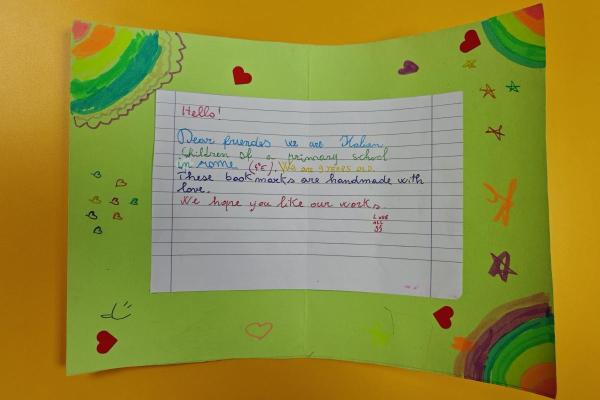 Hello!
Dear friendes we are Italian
children of a primary school
in rome (5°E). We are 9 YEARS OLD.
These bookmarks are handmade with
love.
We hope you like our works